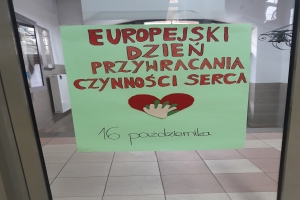 EUROPEJSKI
DZIEŃ
PRZYWRACANIA
CZYNNOŚCI SERCA
16 października